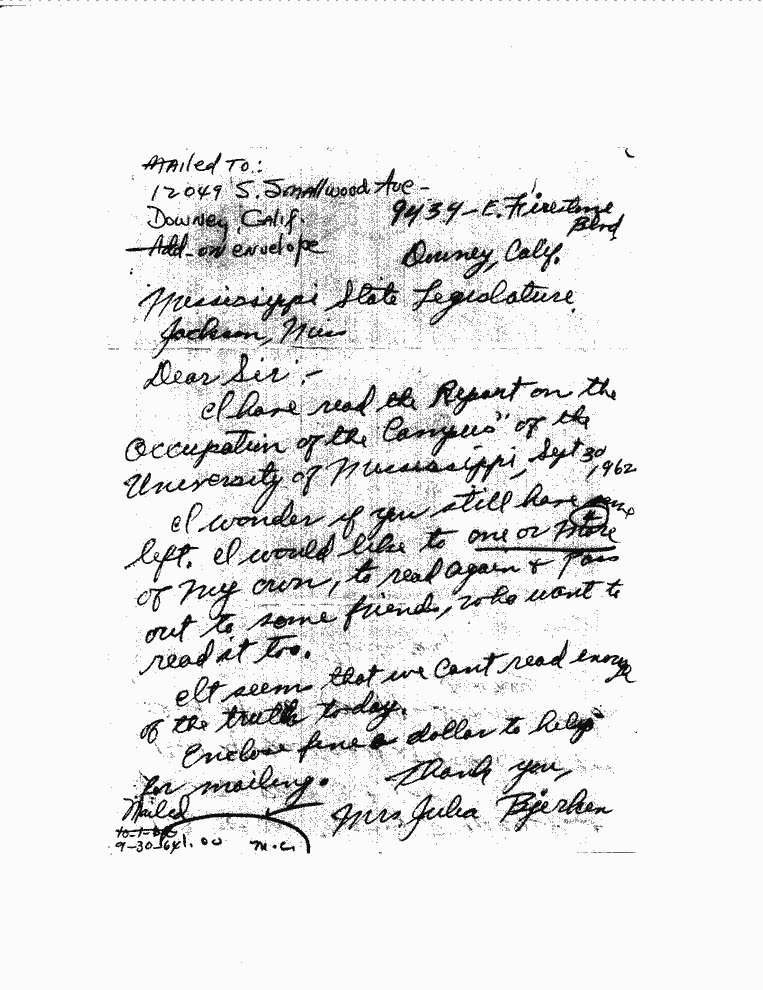 Mailed To:
12049 S. Smallwood Ave -
Downey, Calif.
Add- on envelope
9434 - E. Firestone
Blvd
Downey, Calif.
Mississippi State Legislature
Jackson, Miss
Dear Sir :-
I have read the Report on the
Occupation of the Campus" of the
University of Mississippi, Sept 30
, 1962
I wonder if you still have some
left. I would like to one or more
4
of my own, to read again & Pass
out to some friends, who want to
read it too.
It seems that we cant read enough
of the truth today.
Enclose find a dollar to help
for mailing. Thank you,
Mrs, Julia Bjerken
Mailed
9-30-64 1.00 M.C.